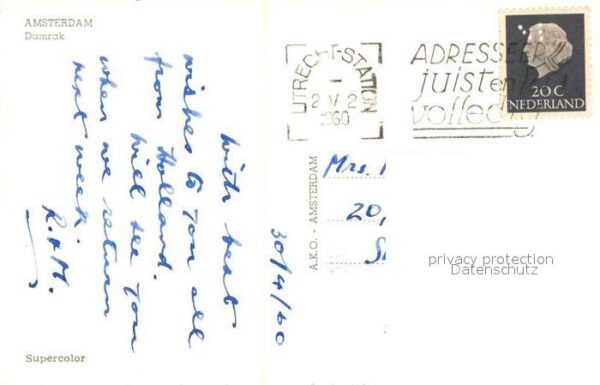 AMSTERDAM
Damrak
with best
wishes to you all
from Holland.
Will see you
when we return
next week.
R. & M.
30/4/60
Supercolor
A.K.O. - AMSTERDAM
UTRECHT-STATION
2 V 2
1960
ADRESSEER
juist en
volledig
20 C
NEDERLAND
Mrs.
20,
privacy protection
Datenschutz